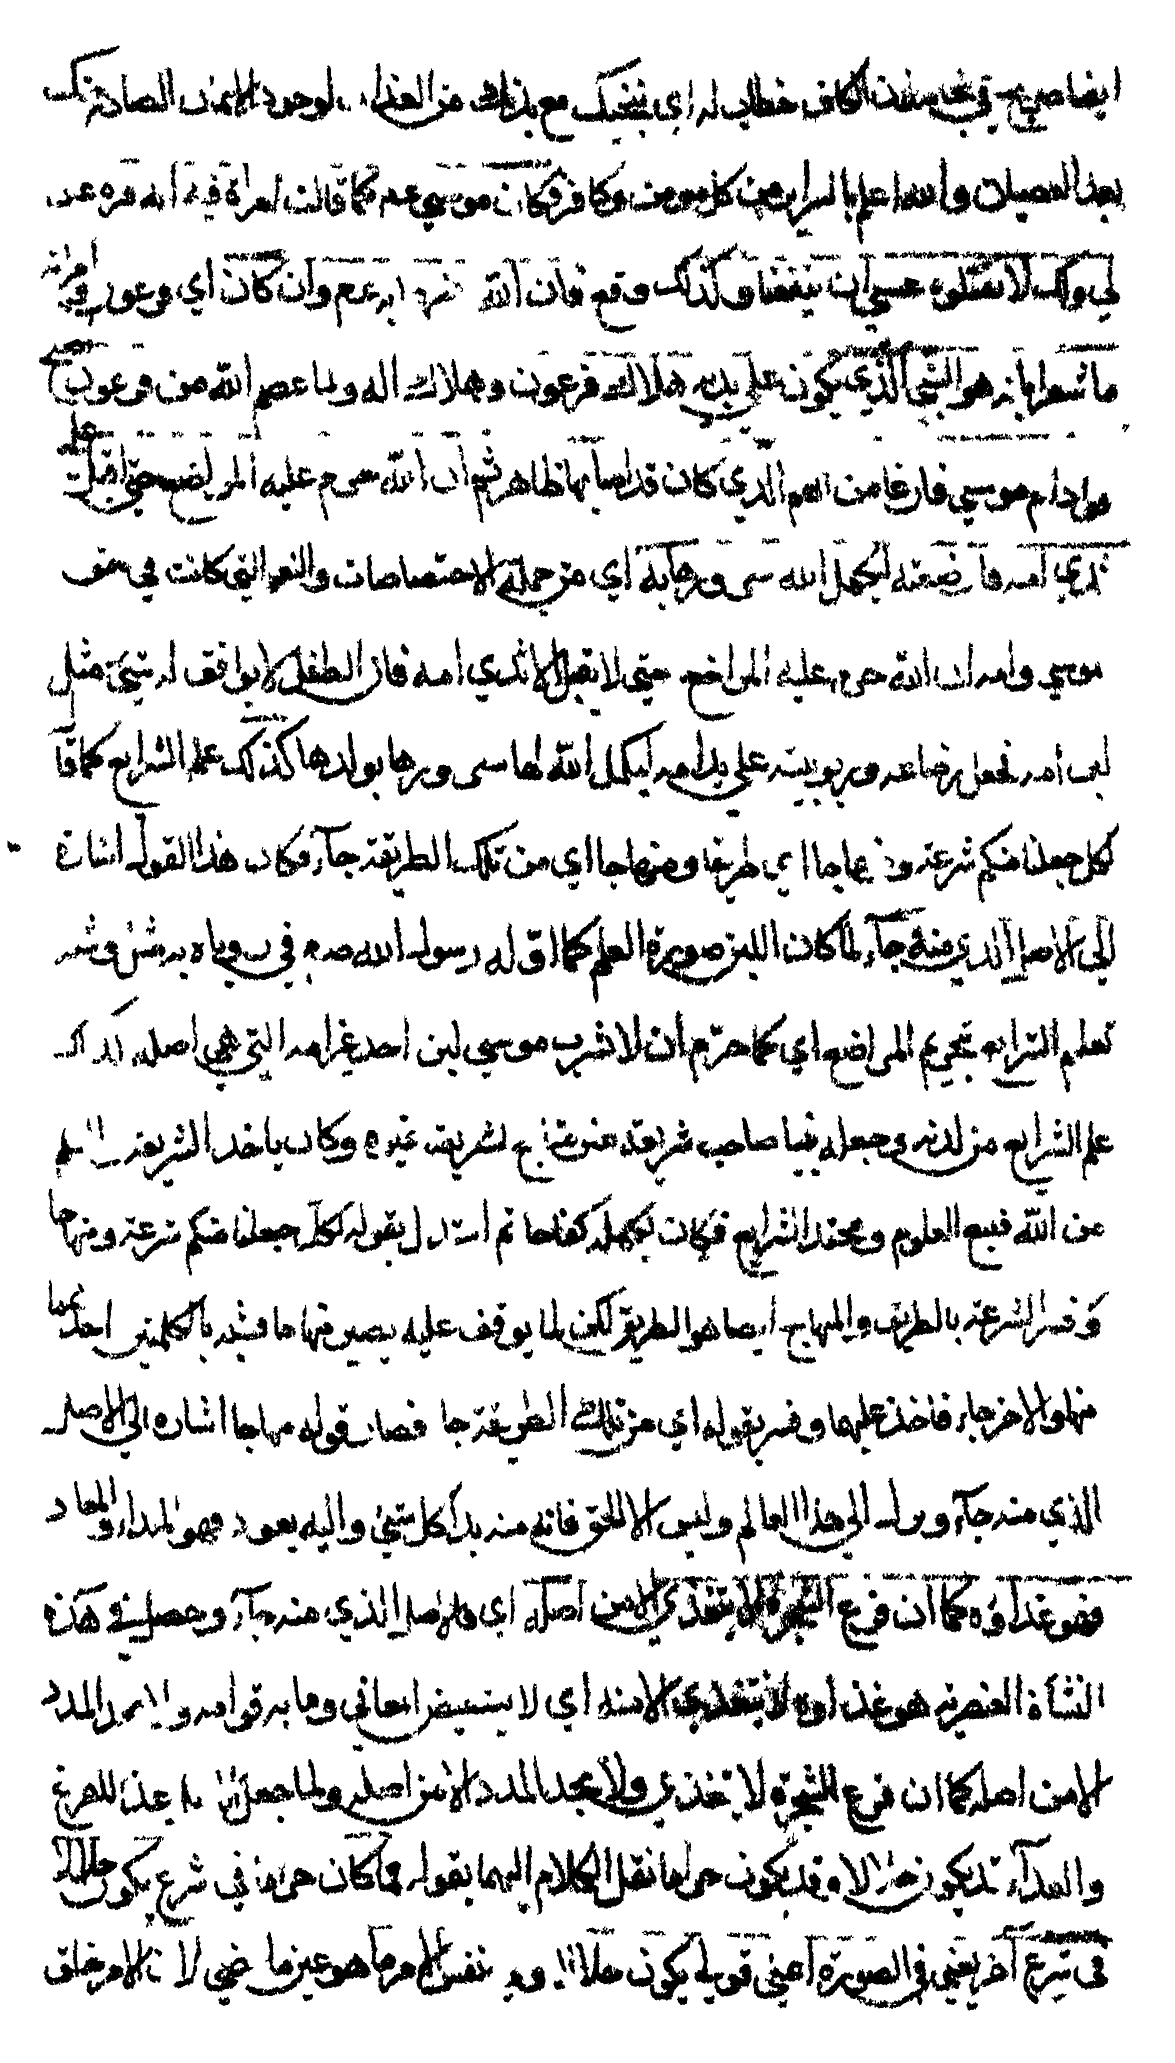 ايضا صريح في نجاته فان الكاف خطاب له اي ننجيك مع بدنك من العذاب لوجود الايمان الصادر منك
بعد العصيان والله اعلم بالسراير من كل مومن وكافر فكان موسي عم كما قالت امراة فيه انه قرة عين
لي ولك لا تقتلوه عسي ان ينفعنا وكذلك وقع فان الله نفعهما به عم وان كان اي فرعون وامراته
ما شعرا بانه هو النبي الذي يكون علي يديه هلاك فرعون وهلاك اله ولما عصم الله من فرعون اصبح
فواد ام موسي فارغا من الهم الذي كان قد اصابها ظاهر ثم ان الله حرم عليه المراضع حتي اقبل علي
ثدي امه فارضعته ليكمل الله سرورها به اي من جملة الاختصاصات والنعم التي كانت في حق
موسي وامه ان الله حرم عليه المراضع حتي لا يقبل الا ثدي امه فان الطفل لا يوافق له شيئ مثل
لبن أمه فجعل رضاعه وربوبيته علي يد امه ليكمل الله لها سرورها بولدها كذلك علم الشرايع كما قا
لكل جعلنا منكم شرعة ومنهاجا اي طريقا ومنهاجا اي من تلك الطريقة جآء فكان هذا القول اشارة
الي الاصل الذي منه جآء لما كان اللبن صورة العلم كما اوله رسول الله صم في روياه
تعليم الشرايع بتحريم المراضع اي كما حرم أن لا يشرب موسي لبن احد غير امه التي هي اصله كذلك
علم الشرايع من لدنه وجعله نبيا صاحب شريعة غيره وكان ياخذ الشريعة
من الله منبع العلوم ومحتد الشرايع فكان ثم استدل بقوله لكل جعلنا منكم شرعة ومنهاجا
وفسر الشرعة بالطريق والمنهاج ايضا هو الطريق لكن لما يوقف عليه يصير منها جا بالكلمتين احدهما
منها والاخر جاء فاخذ عليهما وفسر بقوله اي من تلك الطريقة جا فصار قوله منهاجا اشاره الي الاصل
الذي منه جآء ونزل الي هذا العالم وليس الا الحق فانه منه بدأ كل شيئ واليه يعود فهو المبداء والمعاد
فهو غذاؤه كما ان فرع الشجرة لا يتغذي الا من اصله اي الاصل الذي منه جآء وحصل في هذه
النشأة العنصرية هو غذاوه لا يتغذي الا منه اي لا يستفيض المعاني وما به قوامه ولا يجد المدد
الا من اصله كما ان فرع الشجرة لا يتغذي ولا يجد المدد الا من اصله ولما جعل غذاء للفرع
والغذآء قد يكون حلالا وقد يكون حراما نقل الكلام اليهما بقوله فما كان حراما في شرع يكون حلالا
في شرع آخر يعني في الصورة اعني قولي يكون حلالا وفي نفس الامر ما هو عين ما مضي لان الامر خلق